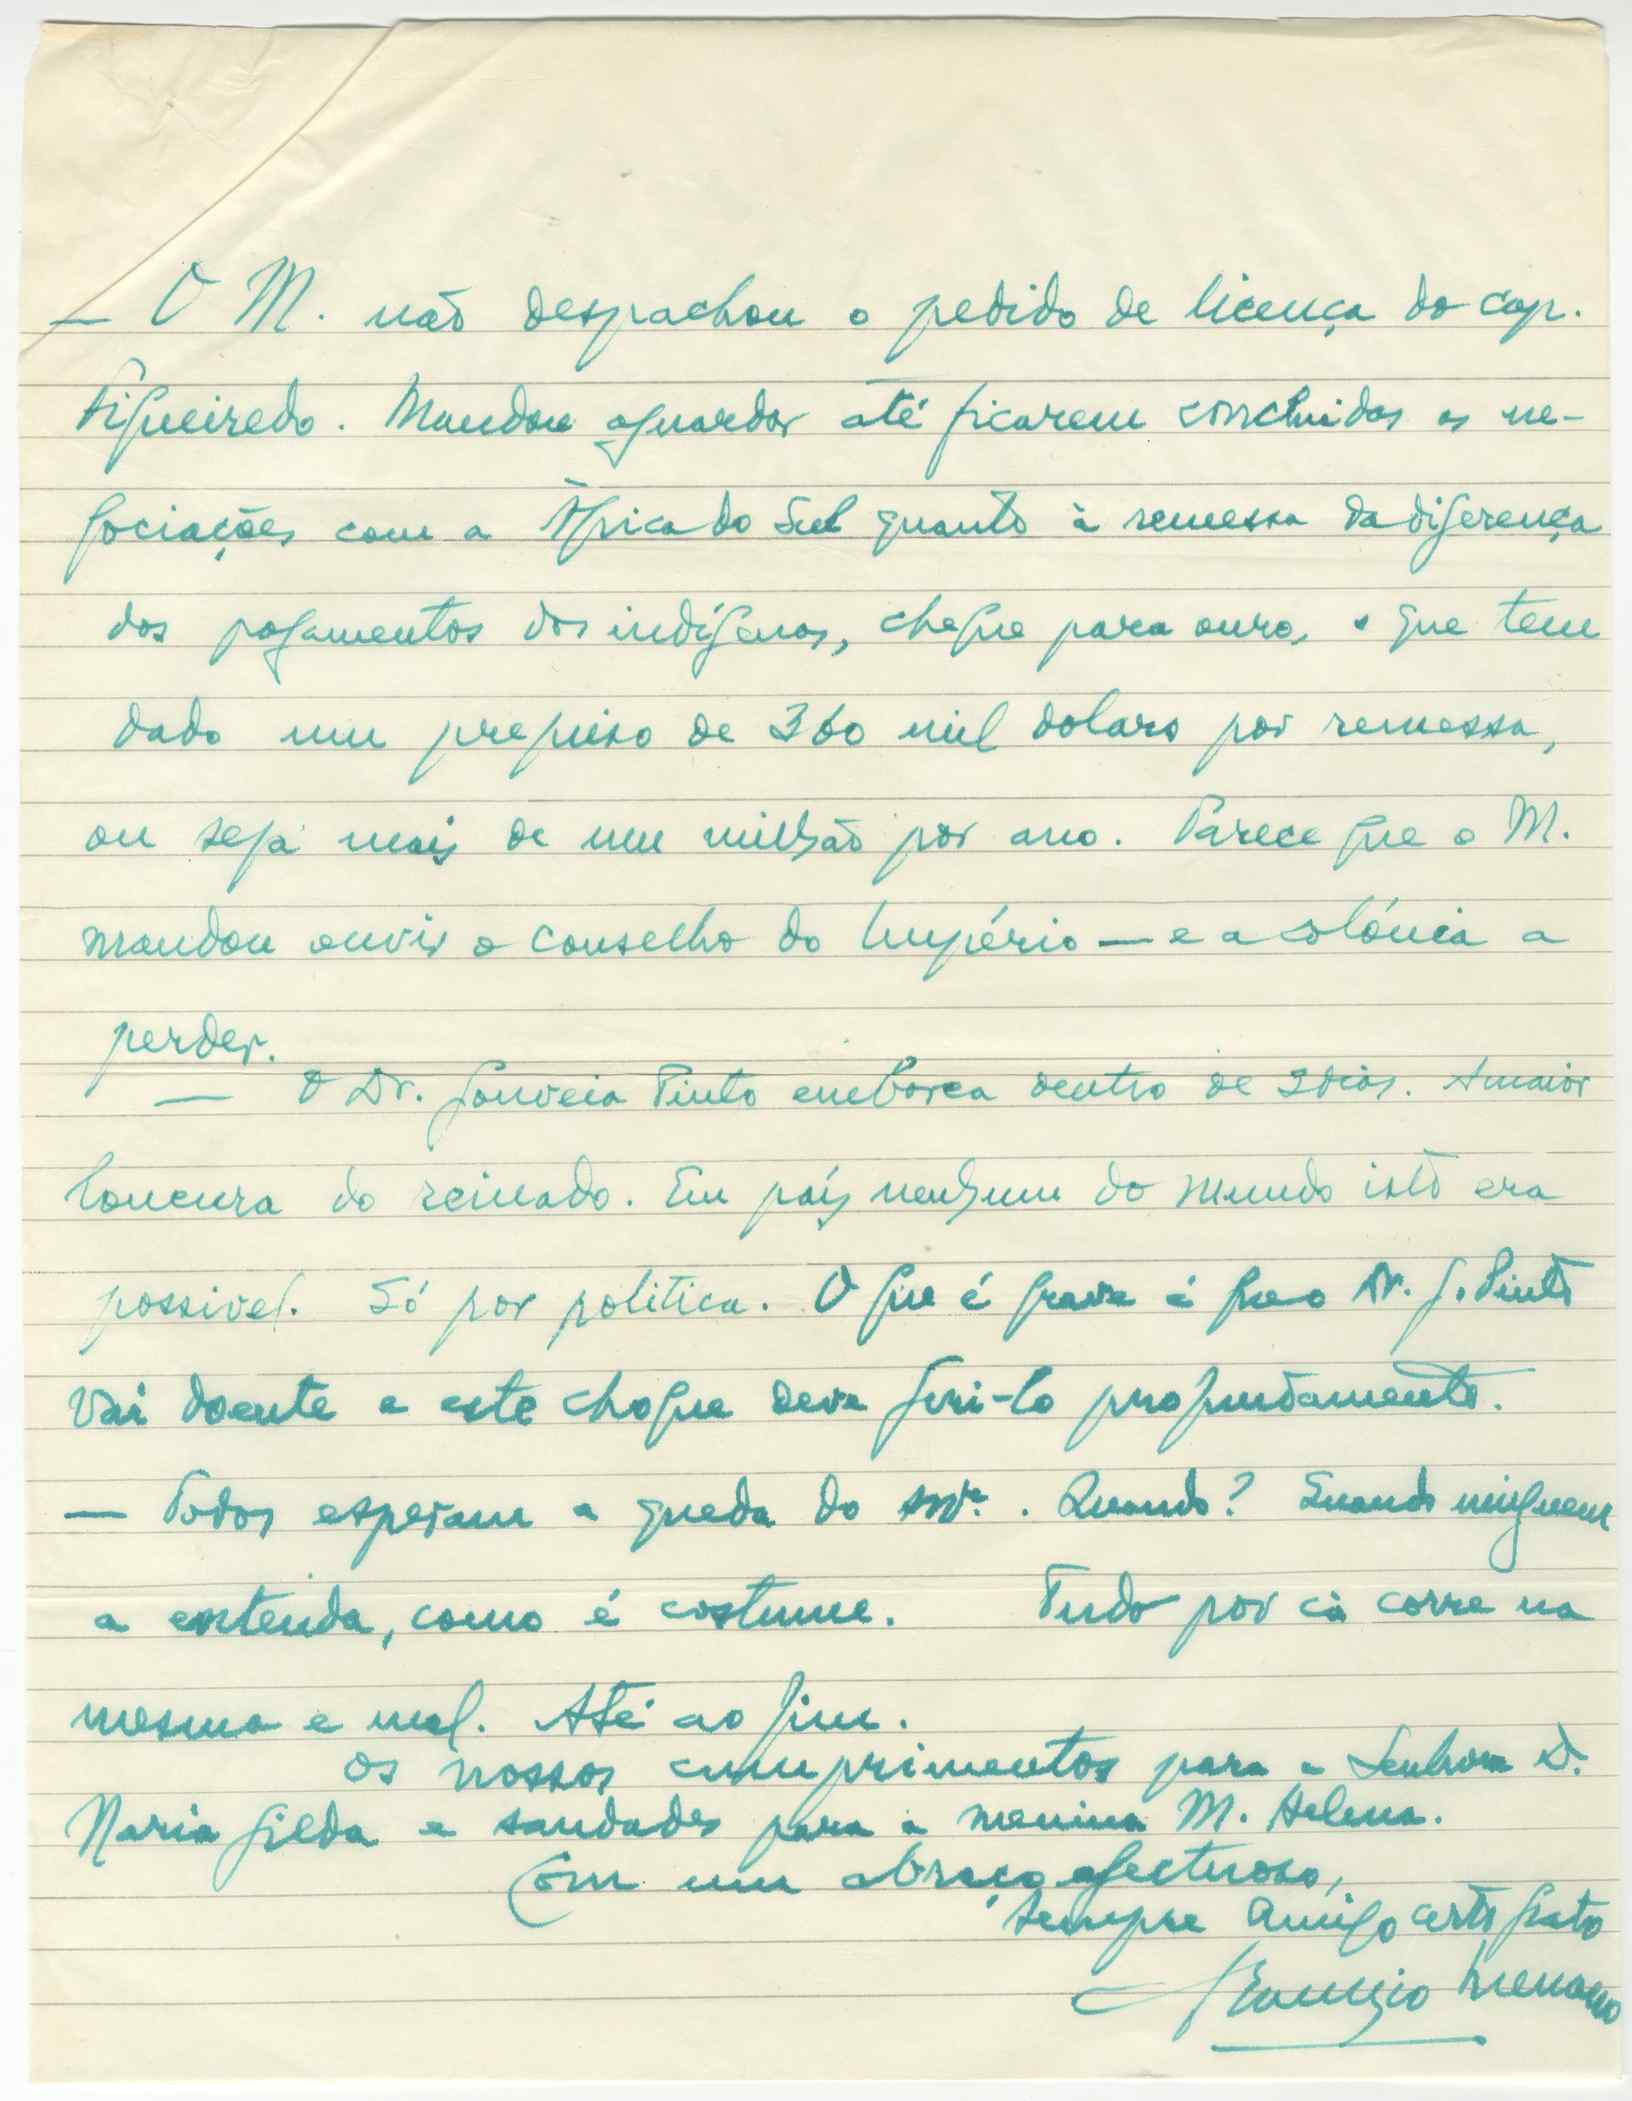 — O M. não despachou o pedido de licença do cap.
Figueiredo. Mandou aguardar até ficarem concluidas as ne-
gociações com a África do Sul quanto à remessa da diferença
dos pagamentos dos indígenas, cheque para ouro, o que tem
dado um prejuiso de 360 mil dolars por remessa,
ou seja mais de um milhão por ano. Parece que o M.
mandou ouvir o Conselho do Império — e a colónia a
perder.
— O Dr. Gouveia Pinto embarca dentro de 2 dias. A maior
loucura do reinado. Em país nenhum do mundo isto era
possivel. Só por politica. O que é grave é que o Dr. G. Pinto
vai doente e este choque deve feri-lo profundamente.
— Todos esperam a queda do Quando? Quando ninguem
a entenda, como é costume. Tudo por cá corre na
mesma e mal. Até ao fim.
Os nossos cumprimentos para a Senhora D.
Maria Gilda e saudades para a menina M. Helena.
Com um abraço afectuoso,
sempre amigo certo grato
Menano